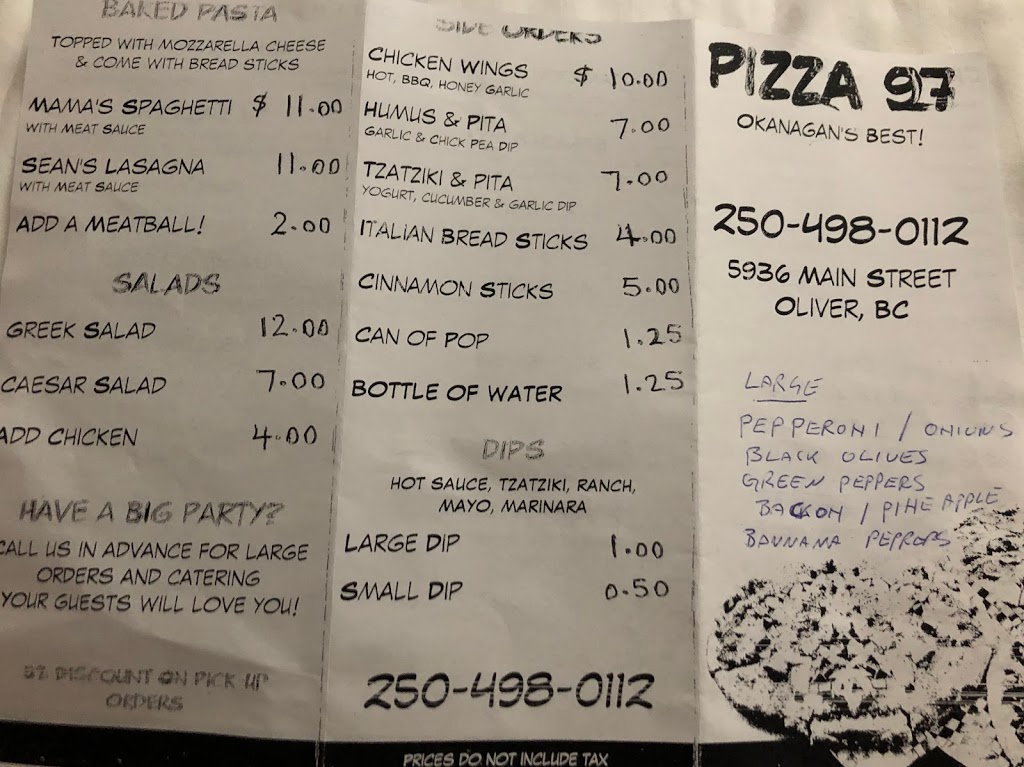 BAKED PASTA
TOPPED WITH MOZZARELLA CHEESE
& COME WITH BREAD STICKS
MAMA'S SPAGHETTI $ 11.00
WITH MEAT SAUCE
SEAN'S LASAGNA 11.00
WITH MEAT SAUCE
ADD A MEATBALL! 2.00
SALADS
GREEK SALAD 12.00
CAESAR SALAD 7.00
ADD CHICKEN 4.00
HAVE A BIG PARTY?
CALL US IN ADVANCE FOR LARGE
ORDERS AND CATERING
YOUR GUESTS WILL LOVE YOU!
DISCOUNT ON PICK UP
ORDERS
SIDE ORDERS
CHICKEN WINGS $ 10.00
HOT, BBQ, HONEY GARLIC
HUMUS & PITA 7.00
GARLIC & CHICK PEA DIP
TZATZIKI & PITA 7.00
YOGURT, CUCUMBER & GARLIC DIP
ITALIAN BREAD STICKS 4.00
CINNAMON STICKS 5.00
CAN OF POP 1.25
BOTTLE OF WATER 1.25
DIPS
HOT SAUCE, TZATZIKI, RANCH,
MAYO, MARINARA
LARGE DIP 1.00
SMALL DIP 0.50
250-498-0112
PRICES DO NOT INCLUDE TAX
PIZZA 97
OKANAGAN'S BEST!
250-498-0112
5936 MAIN STREET
OLIVER, BC
LARGE
PEPPERONI / ONIONS
BLACK OLIVES
GREEN PEPPERS
BACKON / PINEAPPLE
BANNANA PEPROPS